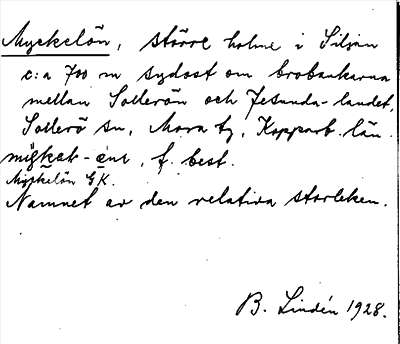 Myckelön, större holme i Siljan
c:a 700 m sydost om brobankarna
mellan Sollerön och Gesunda-landet,
Sollerö sn, Mora tg, Kopparb. län.
best.
Myckelön GK.
Namnet av den relativa storleken.
B. Lindén 1928.